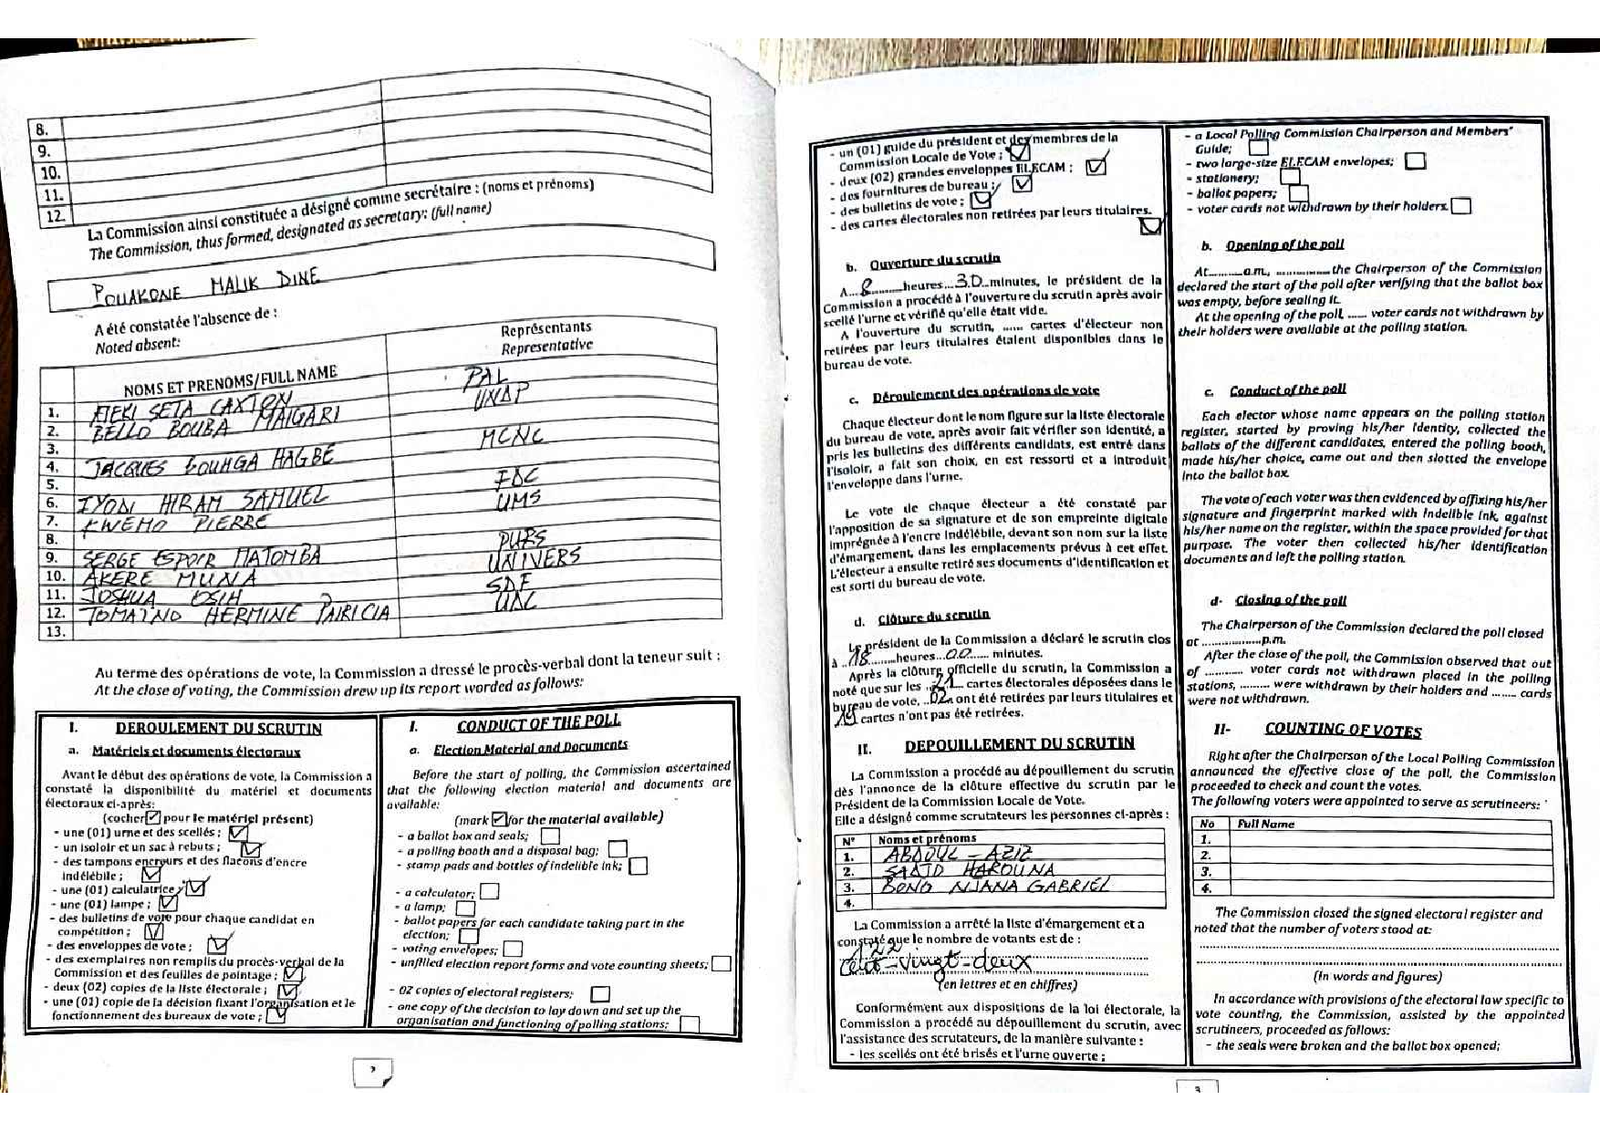 8.
9.
10.
11.
12.
La Commission ainsi constituée a désigné comme secrétaire : (noms et prénoms)
The Commission, thus formed, designated as secretary: (full name)
POUAKONE MALIK DINE
A été constatée l'absence de :
Noted absent:
NOMS ET PRENOMS/FULL NAME
Représentants
Representative
1. ATEKI SETA CAXTON PAL
2. BELLO BOUBA MAIGARI UNDP
3.
4. JACQUES BOUHGA HAGBE MCNC
5.
6. IYODI HIRAM SAMUEL FDC
7. KWEMO PIERRE UMS
8.
9. SERGE ESPOIR MATOMBA PURS
10. AKERE MUNA UNIVERS
11. JOSHUA OSIH SDF
12. TOMAINO HERMINE PATRICIA UDC
13.
Au terme des opérations de vote, la Commission a dressé le procès-verbal dont la teneur suit :
At the close of voting, the Commission drew up its report worded as follows:
I. DEROULEMENT DU SCRUTIN
a. Matériels et documents électoraux
Avant le début des opérations de vote, la Commission a
constaté la disponibilité du matériel et documents
électoraux ci-après:
(cocher ☑ pour le matériel présent)
- une (01) urne et des scellés ; ☑
- un isoloir et un sac à rebuts ; ☑
- des tampons encreurs et des flacons d'encre
indélébile ; ☑
- une (01) calculatrice ; ☑
- une (01) lampe ; ☑
- des bulletins de vote pour chaque candidat en
compétition ; ☑
- des enveloppes de vote ; ☑
- des exemplaires non remplis du procès-verbal de la
Commission et des feuilles de pointage ; ☑
- deux (02) copies de la liste électorale ; ☑
- une (01) copie de la décision fixant l'organisation et le
fonctionnement des bureaux de vote ; ☑
I. CONDUCT OF THE POLL
a. Election Material and Documents
Before the start of polling, the Commission ascertained
that the following election material and documents are
available:
(mark ☑ for the material available)
- a ballot box and seals; ☐
- a polling booth and a disposal bag; ☐
- stamp pads and bottles of indelible ink; ☐
- a calculator; ☐
- a lamp; ☐
- ballot papers for each candidate taking part in the
election; ☐
- voting envelopes; ☐
- unfilled election report forms and vote counting sheets; ☐
- 02 copies of electoral registers; ☐
- one copy of the decision to lay down and set up the
organisation and functioning of polling stations; ☐
2
- un (01) guide du président et des membres de la
Commission Locale de Vote ; ☑
- deux (02) grandes enveloppes ELECAM ; ☑
- des fournitures de bureau ; ☑
- des bulletins de vote ; ☑
- des cartes électorales non retirées par leurs titulaires. ☑
b. Ouverture du scrutin
A...8...heures...30...minutes, le président de la
Commission a procédé à l'ouverture du scrutin après avoir
scellé l'urne et vérifié qu'elle était vide.
A l'ouverture du scrutin, ...... cartes d'électeur non
retirées par leurs titulaires étaient disponibles dans le
bureau de vote.
c. Déroulement des opérations de vote
Chaque électeur dont le nom figure sur la liste électorale
du bureau de vote, après avoir fait vérifier son identité, a
pris les bulletins des différents candidats, est entré dans
l'isoloir, a fait son choix, en est ressorti et a introduit
l'enveloppe dans l'urne.
Le vote de chaque électeur a été constaté par
l'apposition de sa signature et de son empreinte digitale
imprégnée à l'encre indélébile, devant son nom sur la liste
d'émargement, dans les emplacements prévus à cet effet.
L'électeur a ensuite retiré ses documents d'identification et
est sorti du bureau de vote.
d. Clôture du scrutin
Le président de la Commission a déclaré le scrutin clos
à ..18......heures...00...... minutes.
Après la clôture officielle du scrutin, la Commission a
noté que sur les ..21.. cartes électorales déposées dans le
bureau de vote, ..02.. ont été retirées par leurs titulaires et
19 cartes n'ont pas été retirées.
II. DEPOUILLEMENT DU SCRUTIN
La Commission a procédé au dépouillement du scrutin
dès l'annonce de la clôture effective du scrutin par le
Président de la Commission Locale de Vote.
Elle a désigné comme scrutateurs les personnes ci-après :
N° Noms et prénoms
1. ABDOUL - AZIZ
2. SAAID HAROUNA
3. BONO NJANA GABRIEL
4.
La Commission a arrêté la liste d'émargement et a
constaté que le nombre de votants est de :
122
Cent-vingt-deux
(en lettres et en chiffres)
Conformément aux dispositions de la loi électorale, la
Commission a procédé au dépouillement du scrutin, avec
l'assistance des scrutateurs, de la manière suivante :
- les scellés ont été brisés et l'urne ouverte ;
- a Local Polling Commission Chairperson and Members'
Guide; ☐
- two large-size ELECAM envelopes; ☐
- stationery; ☐
- ballot papers; ☐
- voter cards not withdrawn by their holders. ☐
b. Opening of the poll
At..........a.m., ............... the Chairperson of the Commission
declared the start of the poll after verifying that the ballot box
was empty, before sealing it.
At the opening of the poll, ...... voter cards not withdrawn by
their holders were available at the polling station.
c. Conduct of the poll
Each elector whose name appears on the polling station
register, started by proving his/her identity, collected the
ballots of the different candidates, entered the polling booth,
made his/her choice, came out and then slotted the envelope
into the ballot box.
The vote of each voter was then evidenced by affixing his/her
signature and fingerprint marked with indelible ink, against
his/her name on the register, within the space provided for that
purpose. The voter then collected his/her identification
documents and left the polling station.
d- Closing of the poll
The Chairperson of the Commission declared the poll closed
at ..................p.m.
After the close of the poll, the Commission observed that out
of .......... voter cards not withdrawn placed in the polling
stations, ......... were withdrawn by their holders and ........ cards
were not withdrawn.
II- COUNTING OF VOTES
Right after the Chairperson of the Local Polling Commission
announced the effective close of the poll, the Commission
proceeded to check and count the votes.
The following voters were appointed to serve as scrutineers:
No Full Name
1.
2.
3.
4.
The Commission closed the signed electoral register and
noted that the number of voters stood at:
(In words and figures)
In accordance with provisions of the electoral law specific to
vote counting, the Commission, assisted by the appointed
scrutineers, proceeded as follows:
- the seals were broken and the ballot box opened;
3